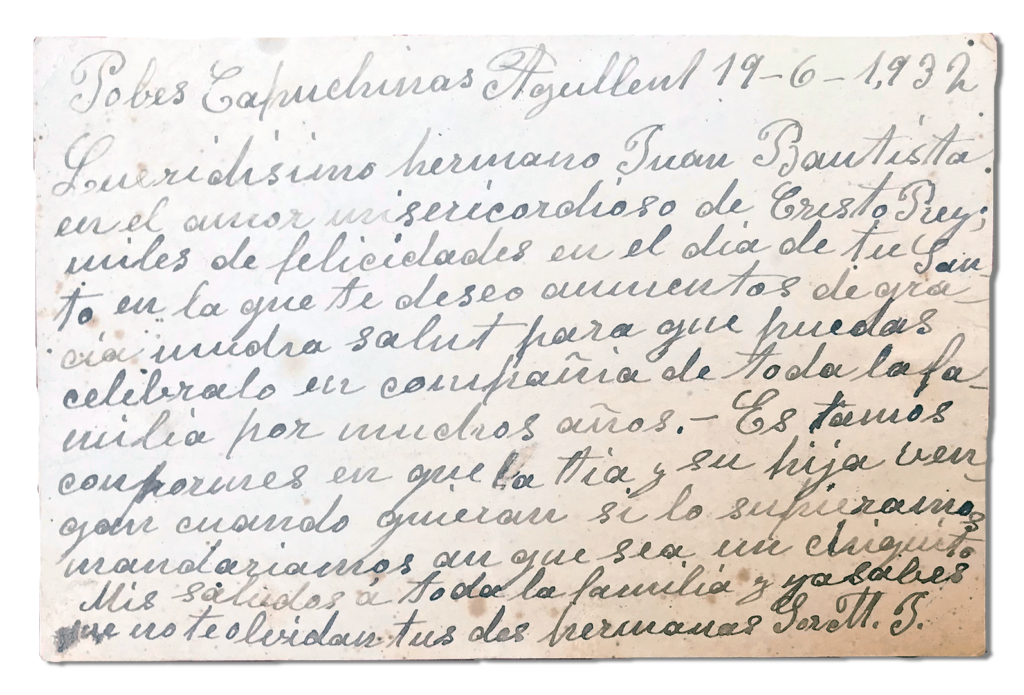 Pobes Capuchinas Agullent 19-6-1,932
Queridisimo hermano Juan Bautista
en el amor misericordioso de Cristo Rey;
miles de felicidades en el dia de tu San-
to en la que te deseo aumentos de gra-
cia mudra salut para que puedas
celibralo en compañia de toda la fa-
milia por muchos años.- Es tamos
conformes en que la tia y su hija ven
gan cuando quieran si lo supieramos
mandariamos an que sea un chiquito
Mis saludos á toda la familia y ya sabes
que no te olvidan tus dos hermanas Sor M. T.